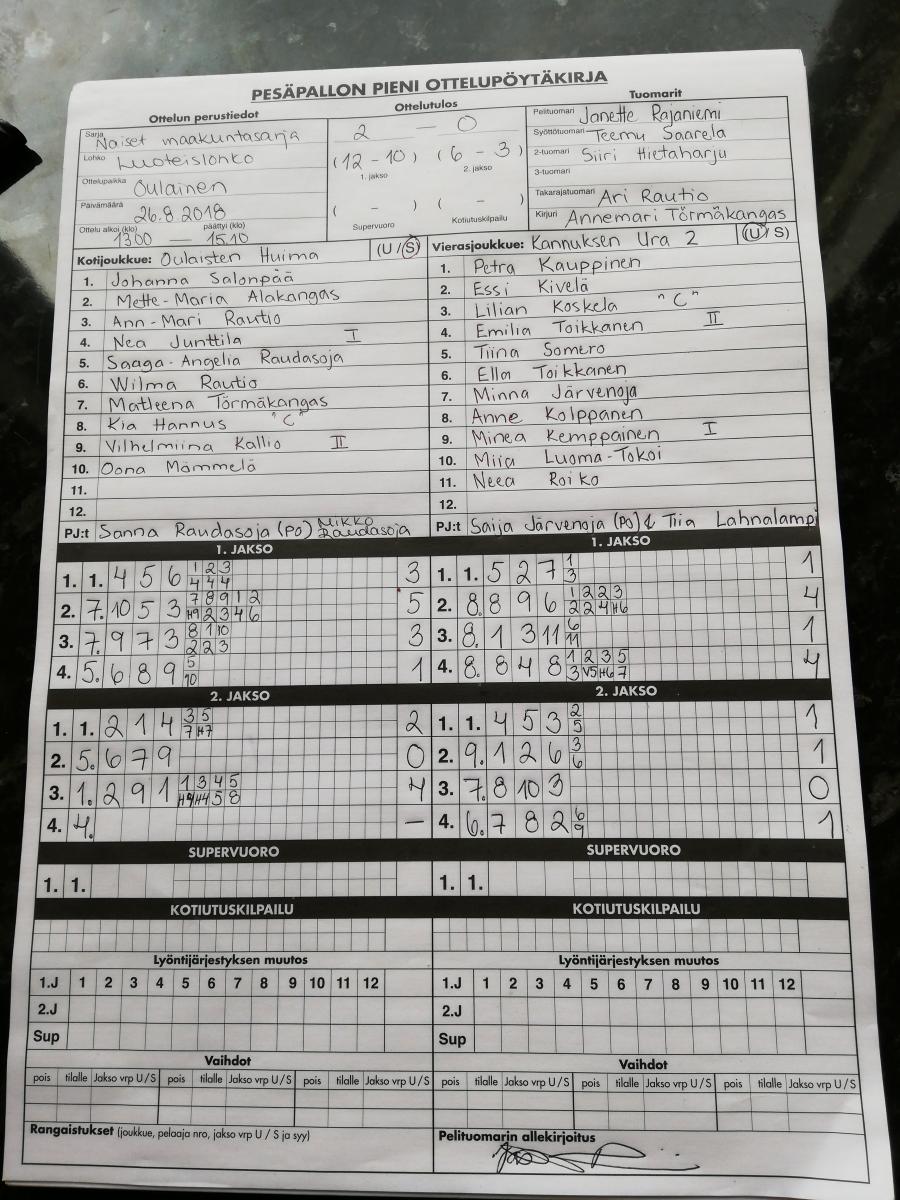 PESÄPALLON PIENI OTTELUPÖYTÄKIRJA
Ottelun perustiedot
Sarja Naiset maakuntasarja
Lohko Luoteislohko
Ottelupaikka Oulainen
Päivämäärä 26.8.2018
Ottelu alkoi (klo) päättyi (klo)
1300 — 1510
Ottelutulos
2 — 0
(12 - 10) (6 - 3)
1. jakso 2. jakso
( - ) ( - )
Supervuoro Kotiutuskilpailu
Tuomarit
Pelituomari Janette Rajaniemi
Syöttötuomari Teemu Saarela
2-tuomari Siiri Hietaharju
3-tuomari
Takarajatuomari Ari Rautio
Kirjuri Annemari Törmäkangas
Kotijoukkue: Oulaisten Huima (U / S)
1. Johanna Salonpää
2. Mette-Maria Alakangas
3. Ann-Mari Rautio
4. Nea Junttila I
5. Saaga-Angelia Raudasoja
6. Wilma Rautio
7. Matleena Törmäkangas
8. Kia Hannus "C"
9. Vilhelmiina Kallio II
10. Oona Mämmelä
11.
12.
PJ:t Sanna Raudasoja (PO) Mikko Raudasoja
Vierasjoukkue: Kannuksen Ura 2 (U / S)
1. Petra Kauppinen
2. Essi Kivelä
3. Lilian Koskela "C"
4. Emilia Toikkanen II
5. Tiina Somero
6. Ella Toikkanen
7. Minna Järvenoja
8. Anne Kolppanen
9. Minea Kemppainen I
10. Miia Luoma-Tokoi
11. Neea Roiko
12.
PJ:t Saija Järvenoja (PO) & Tiia Lahnalampi
1. JAKSO
1. 1. 4 5 6 1 2 3 3
4 4 4
2. 7. 10 5 3 7 8 9 1 2 5
H9 2 3 4 6
3. 7. 9 7 3 8 1 10 3
2 2 3
4. 5. 6 8 9 5 1
10
2. JAKSO
1. 1. 2 1 4 3 5 2
7 H7
2. 5. 6 7 9 0
3. 1. 2 9 1 1 3 4 5 4
H4 H4 5 8
4. 4. —
SUPERVUORO
1. 1.
KOTIUTUSKILPAILU
Lyöntijärjestyksen muutos
1.J 1 2 3 4 5 6 7 8 9 10 11 12
2.J
Sup
Vaihdot
pois tilalle Jakso vrp U / S pois tilalle Jakso vrp U / S pois tilalle Jakso vrp U / S
Rangaistukset (joukkue, pelaaja nro, jakso vrp U / S ja syy)
1. JAKSO
1. 1. 5 2 7 1 1
3
2. 8. 8 9 6 1 2 2 3 4
2 2 4 H6
3. 8. 1 3 11 6 1
11
4. 8. 8 4 8 1 2 3 5 4
3 V5 H6 7
2. JAKSO
1. 1. 4 5 3 2 1
5
2. 9. 1 2 6 3 1
6
3. 7. 8 10 3 0
4. 6. 7 8 2 6 1
9
SUPERVUORO
1. 1.
KOTIUTUSKILPAILU
Lyöntijärjestyksen muutos
1.J 1 2 3 4 5 6 7 8 9 10 11 12
2.J
Sup
Vaihdot
pois tilalle Jakso vrp U / S pois tilalle Jakso vrp U / S pois tilalle Jakso vrp U / S
Pelituomarin allekirjoitus